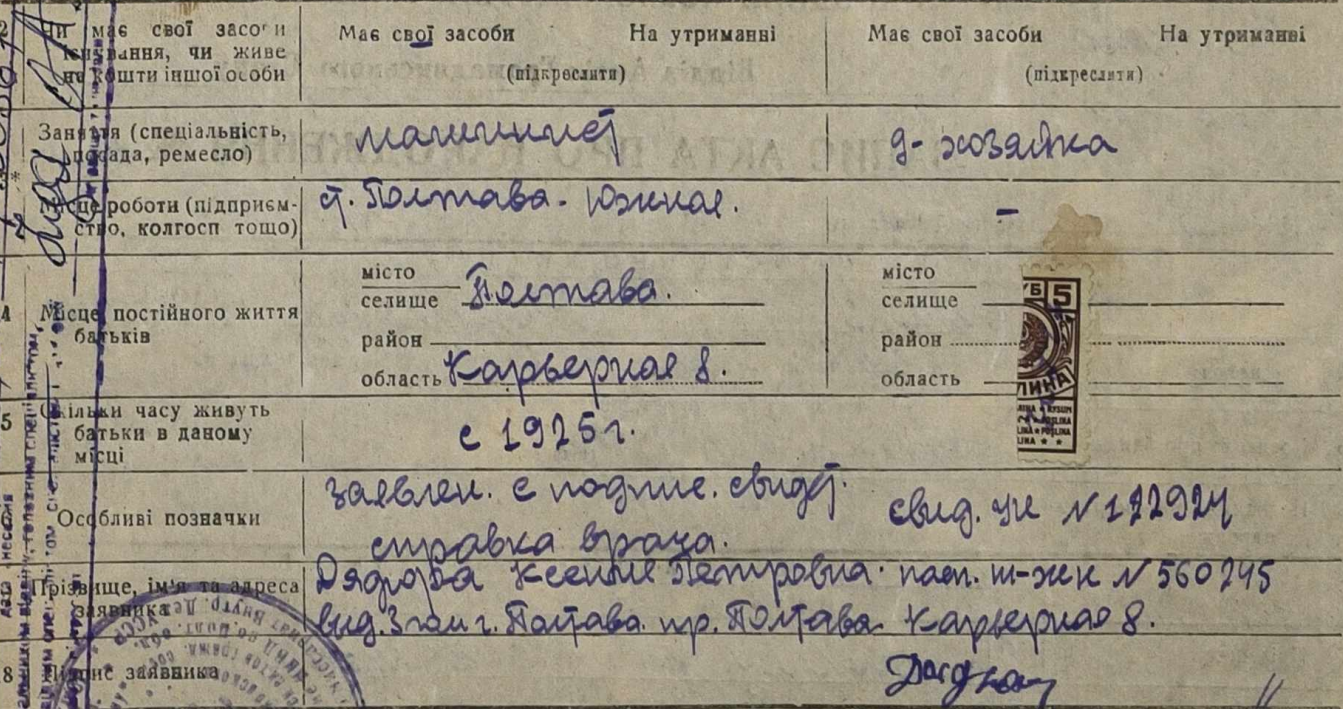 2 Чи має свої засоби
існування, чи живе
на кошти іншої особи
Має свої засоби На утриманні
(підкреслити)
Має свої засоби На утриманні
(підкреслити)
Заняття (спеціальність,
посада, ремесло)
машинист
д-хозяйка
Місце роботи (підприєм-
ство, колгосп тощо)
ст. Полтава-Южная.
–
4 Місце постійного життя
батьків
місто
селище Полтава.
район
область Карьерная 8.
місто
селище
район
область
5
5 Скільки часу живуть
батьки в даному
місці
с 1925 г.
Особливі позначки
заявлен. с подпис. свидет.
справка врача.
свид. № 122924
Прізвище, ім'я та адреса
заявника
Ксения Петровна. пасп. № 560245
выд. г. Полтава пр. Полтава Карьерная 8.
8 Підпис заявника